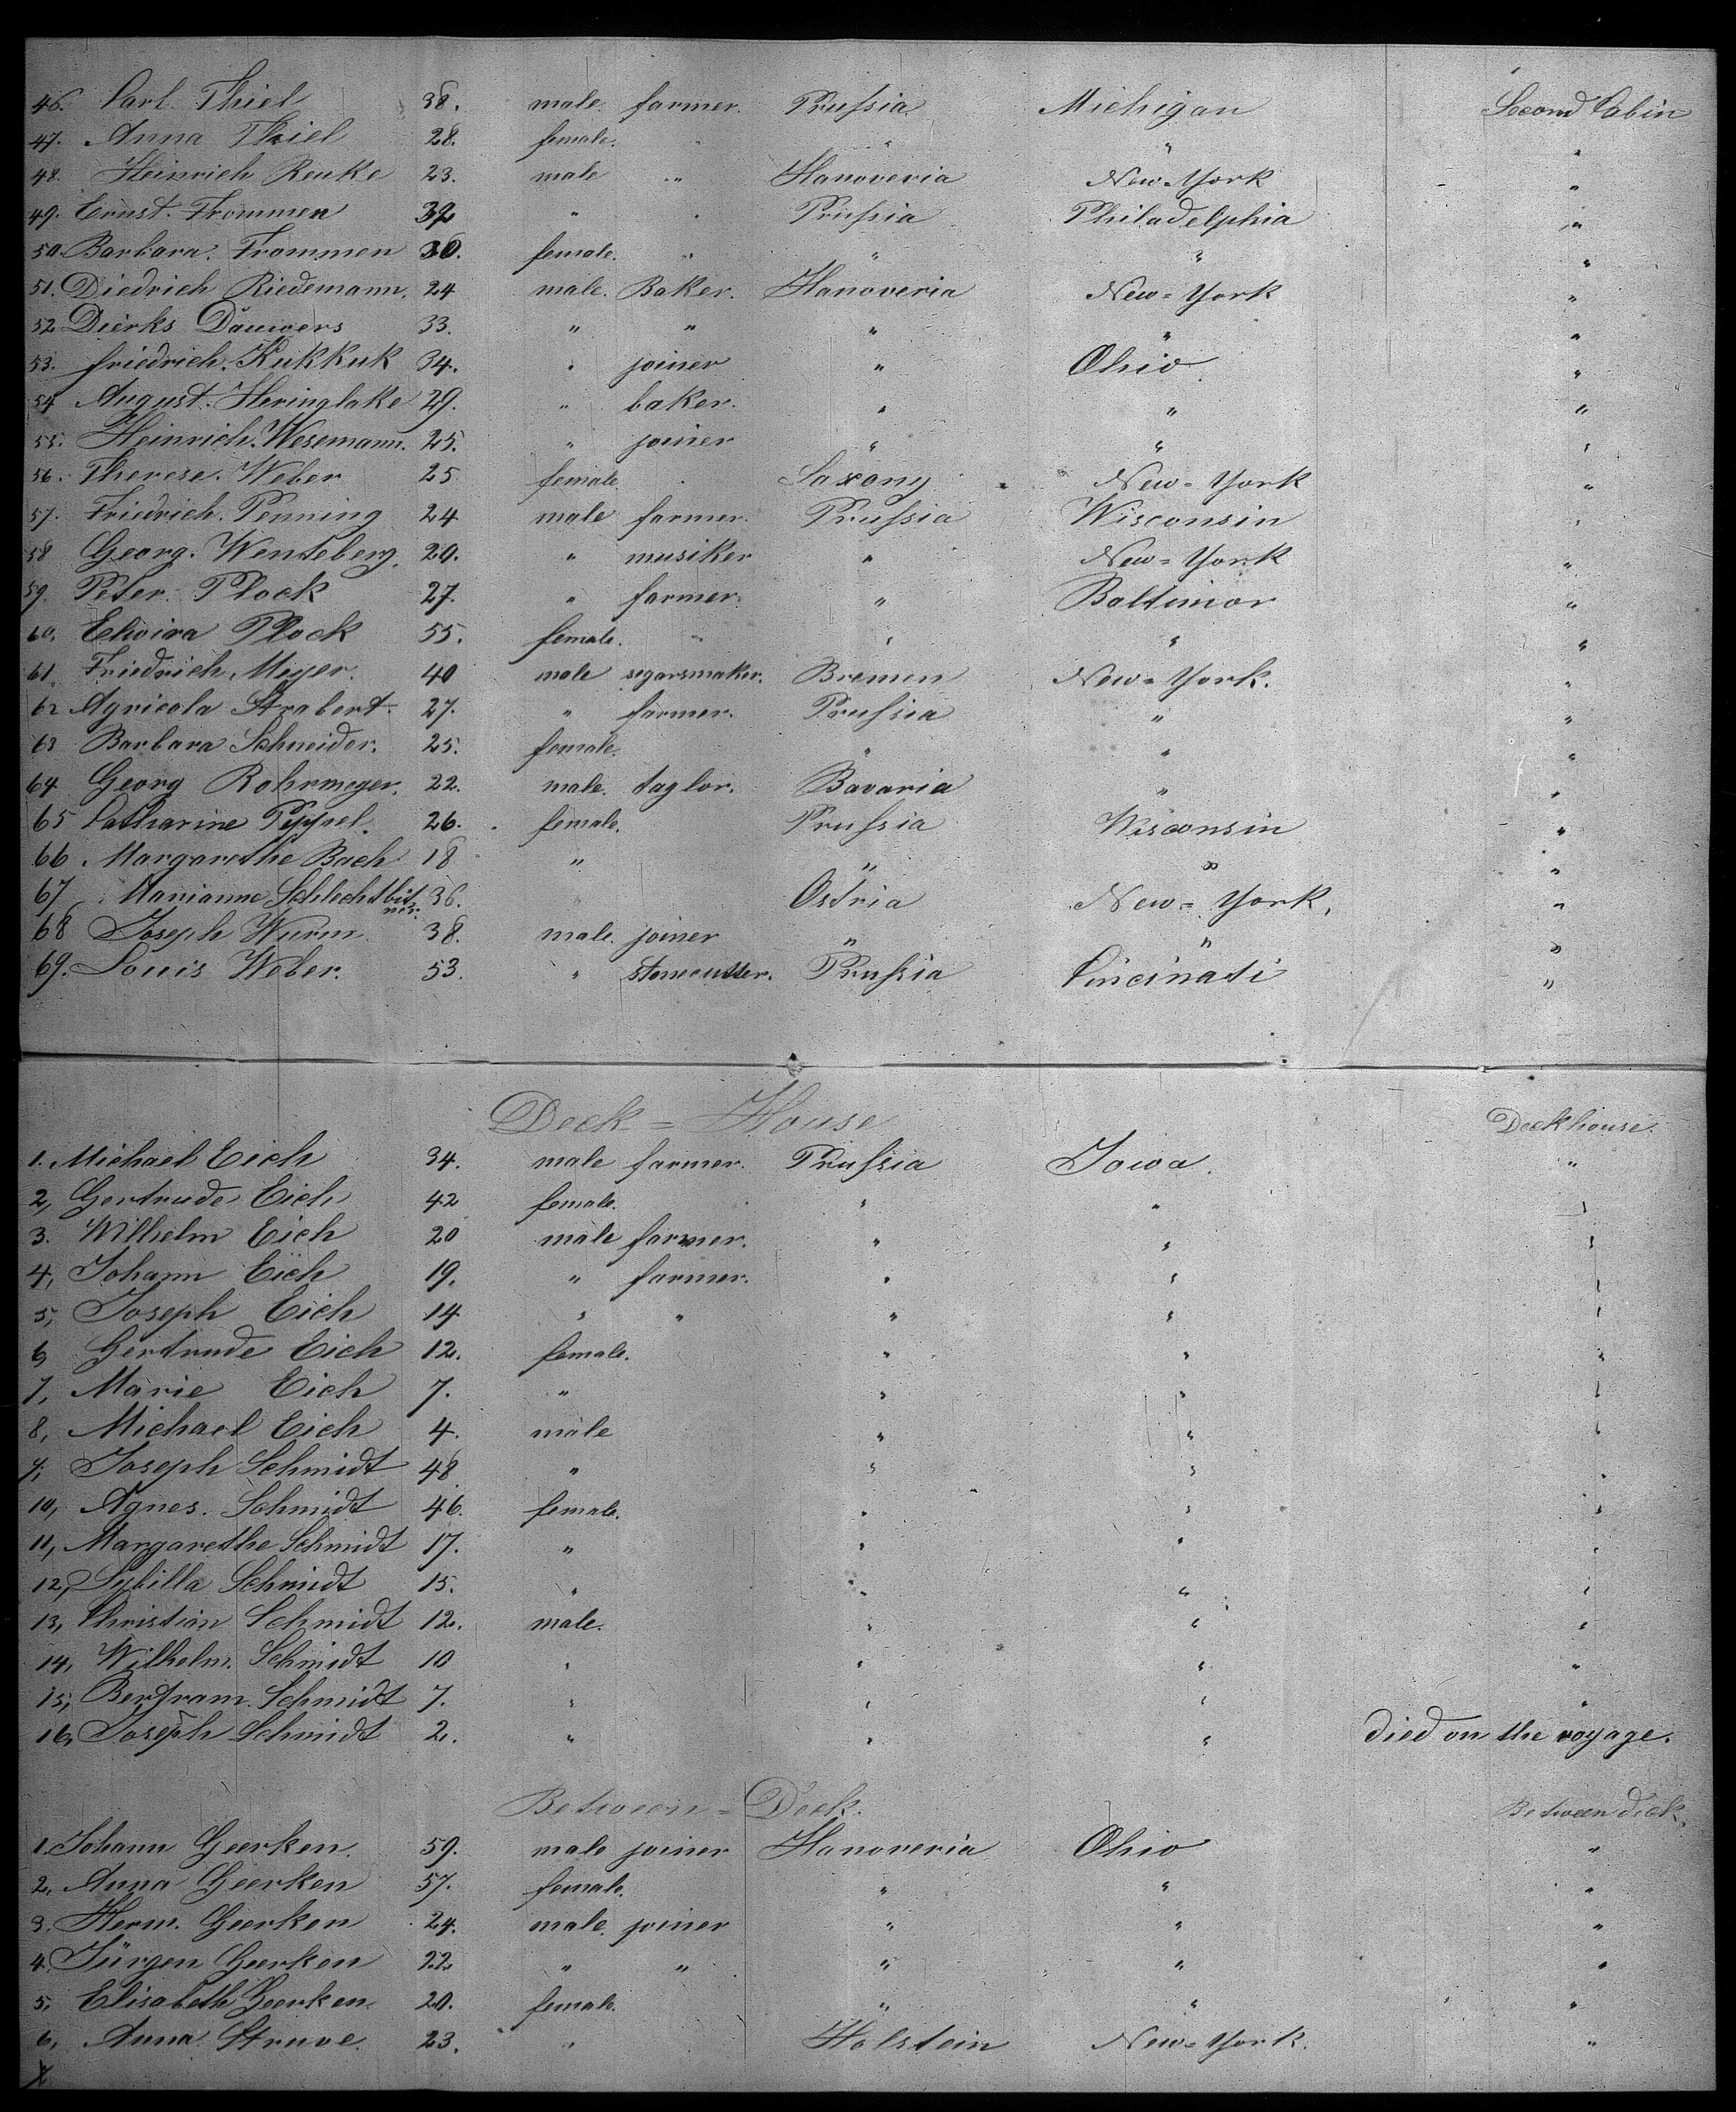 46. Carl Thiel 38. male. farmer. Prussia Michigan Second Cabin
47. Anna Thiel 28. female. " " " "
48. Heinrich Renke 23. male " Hanoveria New-York "
49. Ernst. Frommen 32 " " Prussia Philadelphia "
50. Barbara. Frommen 30. female. " " " "
51. Diedrich Riedemann. 24 male. Baker. Hanoveria New-York "
52 Dierks Dauwers 33. " " " " "
53. friedrich. Kukkuk 34. " joiner " Ohio. "
54 August. Heringlake 29. " baker. " " "
55. Heinrich. Wesemann. 25. " joiner " " "
56. Therese. Weber 25 female. Saxony New-York "
57. Friedrich. Penning 24 male farmer. Prussia Wisconsin "
58 Georg. Wenteberg. 20. " musiker " New-York "
59. Peter. Plock 27. " farmer. " Baltimor "
60. Elwira Plock 55. female. " " " "
61. Friedrich Meyer. 40 male segarsmaker. Bremen New-York. "
62 Agricola Strabert. 27. " farmer. Prussia " "
63 Barbara Schneider. 25. female. " " "
64 Georg Rohrmeyer. 22. male. taylor. Bavaria " "
65 Catharine Pippel. 26. female. Prussia Wisconsin "
66. Margarethe Bach 18 " " " "
67 Marianne Schlechtbitner. 36. " Ostria New-York, "
68 Joseph Wurm 38. male. joiner " " "
69. Louis Weber. 53. " stonecutter. Prussia Cincinati "
Deck-House Deckhouse.
1. Michael Eich 34. male farmer. Prussia Iowa. "
2, Gertrude Eich 42 female. " " "
3. Wilhelm Eich 20 male farmer. " " "
4, Johann Eich 19. " farmer. " " "
5, Joseph Eich 14 " " " " "
6, Gertrude Eich 12. female. " " "
7, Marie Eich 7. " " " "
8, Michael Eich 4. male " " "
9, Joseph Schmidt 48 " " " "
10, Agnes. Schmidt 46. female. " " "
11, Margarethe Schmidt 17. " " " "
12, Sybilla Schmidt 15. " " " "
13, Christian Schmidt 12. male. " " "
14, Wilhelm. Schmidt 10 " " " "
15, Bertram. Schmidt 7. " " " "
16, Joseph Schmidt 2. " " " died on the voyage.
Between-Deck. Between deck.
1. Johann Geerken. 59. male joiner Hanoveria Ohio "
2. Anna Geerken 57. female. " " "
3. Herm. Geerken 24. male. joiner " " "
4. Jürgen Geerken 22 " " " " "
5, Elisabeth Geerken. 20. female. " " "
6, Anna Struve. 23. " Holstein New-York. "